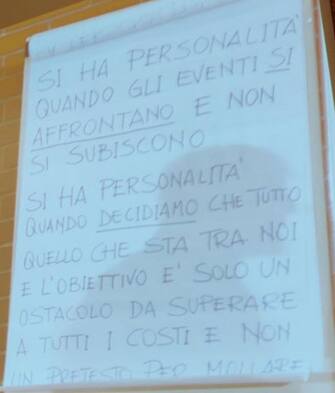 SI HA PERSONALITÀ
QUANDO GLI EVENTI SI
AFFRONTANO E NON
SI SUBISCONO
SI HA PERSONALITÀ
QUANDO DECIDIAMO CHE TUTTO
QUELLO CHE STA TRA NOI
E L'OBIETTIVO E' SOLO UN
OSTACOLO DA SUPERARE
A TUTTI I COSTI E NON
UN PRETESTO PER MOLLARE